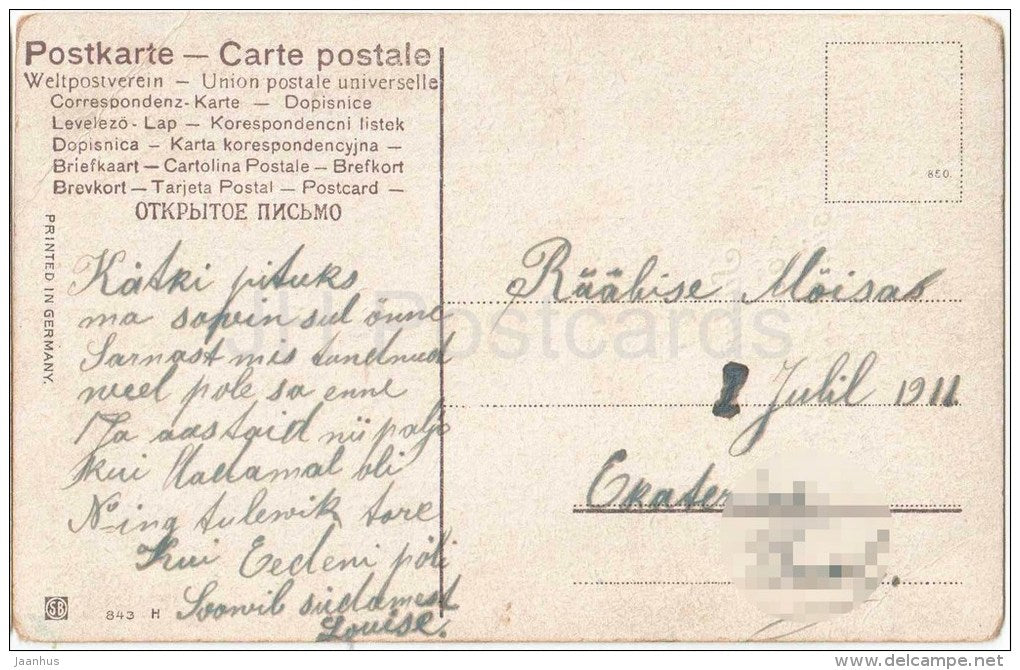 Postkarte — Carte postale
Weltpostverein — Union postale universelle
Correspondenz-Karte — Dopisnice
Levelező-Lap — Korespondencni listek
Dopisnica — Karta korespondencyjna —
Briefkaart — Cartolina Postale — Brefkort
Brevkort — Tarjeta Postal — Postcard —
ОТКРЫТОЕ ПИСЬМО
PRINTED IN GERMANY.
Kätki pituks
ma sowin sul õnne
Sarnast mis tundnud
weel pole sa enne
Ja aastaid nii palju
kui Aadamal oli
Ning tulewik tore
Kui Eedeni põli
Soowib südamest
Louise.
SB
843 H
850.
Rääbise Mõisas
1 Julil 1911
Ekater
JH Postcards
Jaanhus
www.delcampe.net